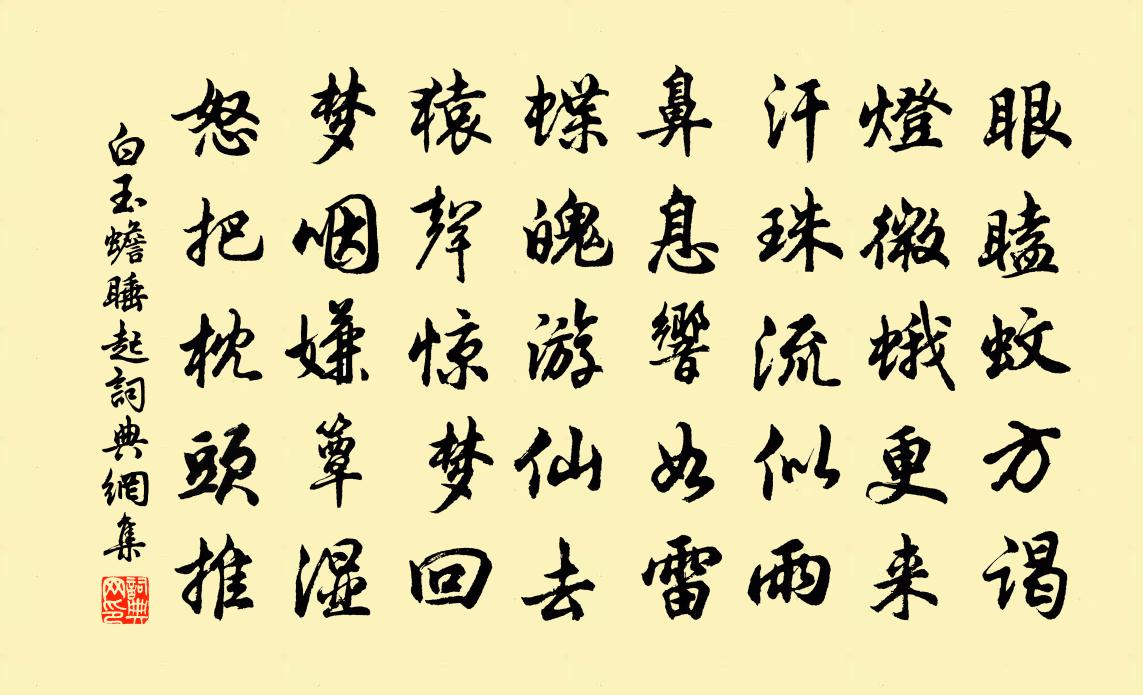 眼瞌蚊方谒
燈微蛾更来
汗珠流似雨
鼻息響如雷
蝶魄游仙去
猿聲惊梦回
梦咽嫌簟湿
怒把枕頭推
白玉蟾睡起詞典網集
詞典网印